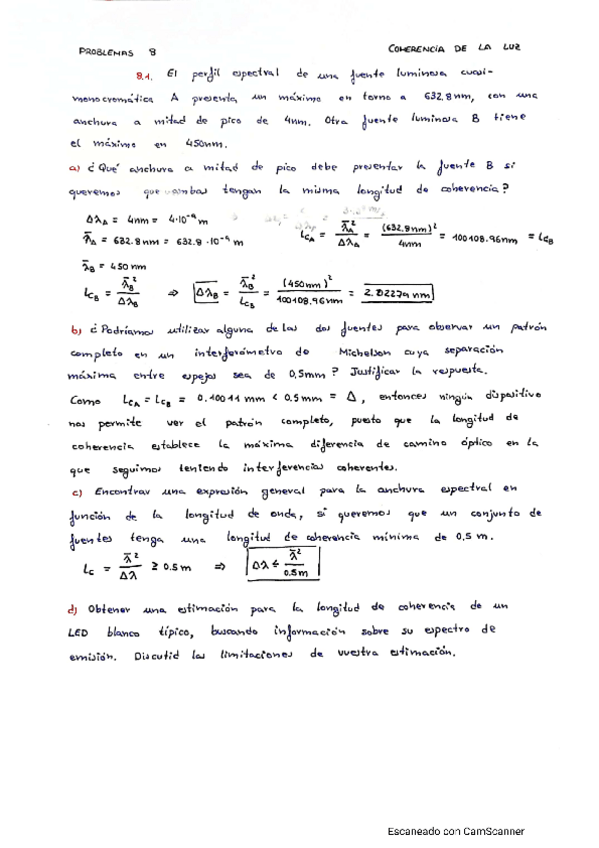 PROBLEMAS 8 COHERENCIA DE LA LUZ
8.1. El perfil espectral de una fuente luminosa cuasi-
monocromática A presenta un máximo en torno a 632.8nm, con una
anchura a mitad de pico de 4nm. Otra fuente luminosa B tiene
el máximo en 450nm.
a) ¿Qué anchura a mitad de pico debe presentar la fuente B si
queremos que ambas tengan la misma longitud de coherencia?
Δλ_A = 4nm = 4·10⁻⁹ m
λ̄_A = 632.8nm = 632.8·10⁻⁹ m L_{C_A} = λ̄_A²/Δλ_A = (632.8nm)²/4nm = 100108.96nm = L_{C_B}
λ̄_B = 450nm
L_{C_B} = λ̄_B²/Δλ_B ⇒ Δλ_B = λ̄_B²/L_{C_B} = (450nm)²/100108.96nm = 2.02279nm
b) ¿Podríamos utilizar alguna de las dos fuentes para observar un patrón
completo en un interferómetro de Michelson cuya separación
máxima entre espejos sea de 0,5mm? Justificar la respuesta.
Como L_{C_A} = L_{C_B} = 0.10011 mm < 0.5mm = Δ, entonces ningún dispositivo
nos permite ver el patrón completo, puesto que la longitud de
coherencia establece la máxima diferencia de camino óptico en la
que seguimos teniendo interferencias coherentes.
c) Encontrar una expresión general para la anchura espectral en
función de la longitud de onda, si queremos que un conjunto de
fuentes tenga una longitud de coherencia mínima de 0,5 m.
L_C = λ̄²/Δλ ≥ 0.5m ⇒ Δλ ≤ λ̄²/0.5m
d) Obtener una estimación para la longitud de coherencia de un
LED blanco típico, buscando información sobre su espectro de
emisión. Discutid las limitaciones de vuestra estimación.
Escaneado con CamScanner